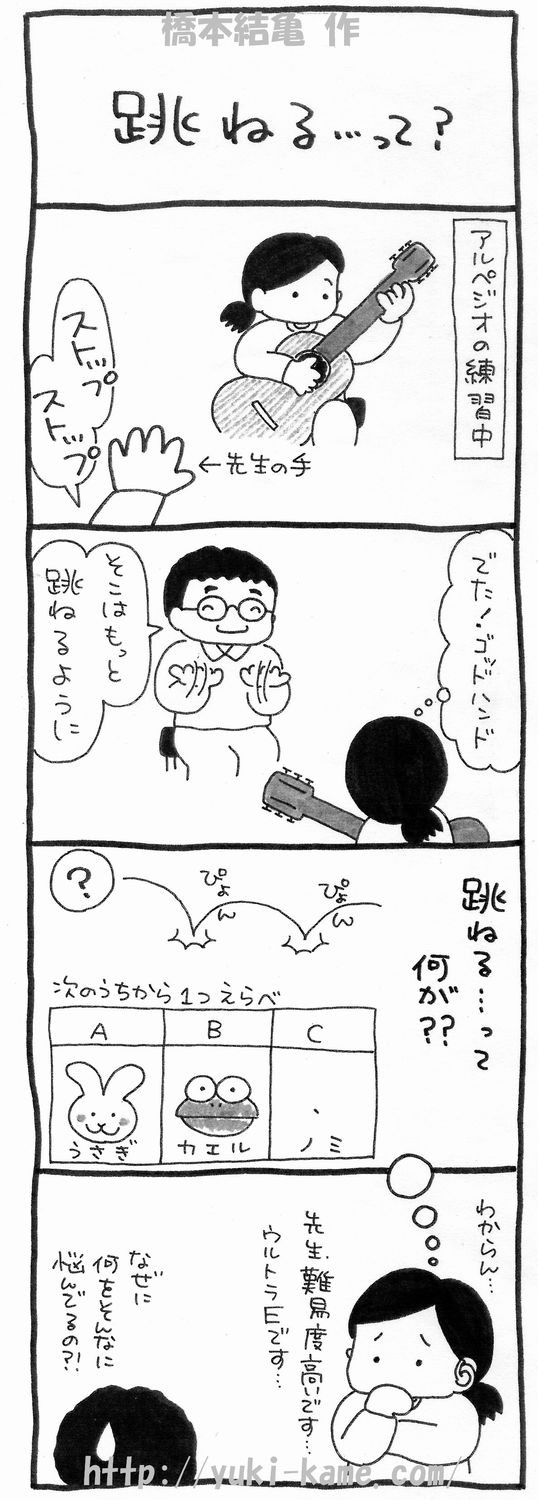 橋本結亀 作
跳ねる…って?
アルペジオの練習中
ストップ
ストップ
←先生の手
でた!ゴッドハンド
そこはもっと
跳ねるように
跳ねる…って
何が??
?
ぴょん
ぴょん
次のうちから1つえらべ
A
B
C
うさぎ
カエル
ノミ
わからん…
先生、難易度高いです…
ウルトラEです…
なぜに
何をそんなに
悩んでるの?!
http://yuki-kame.com/